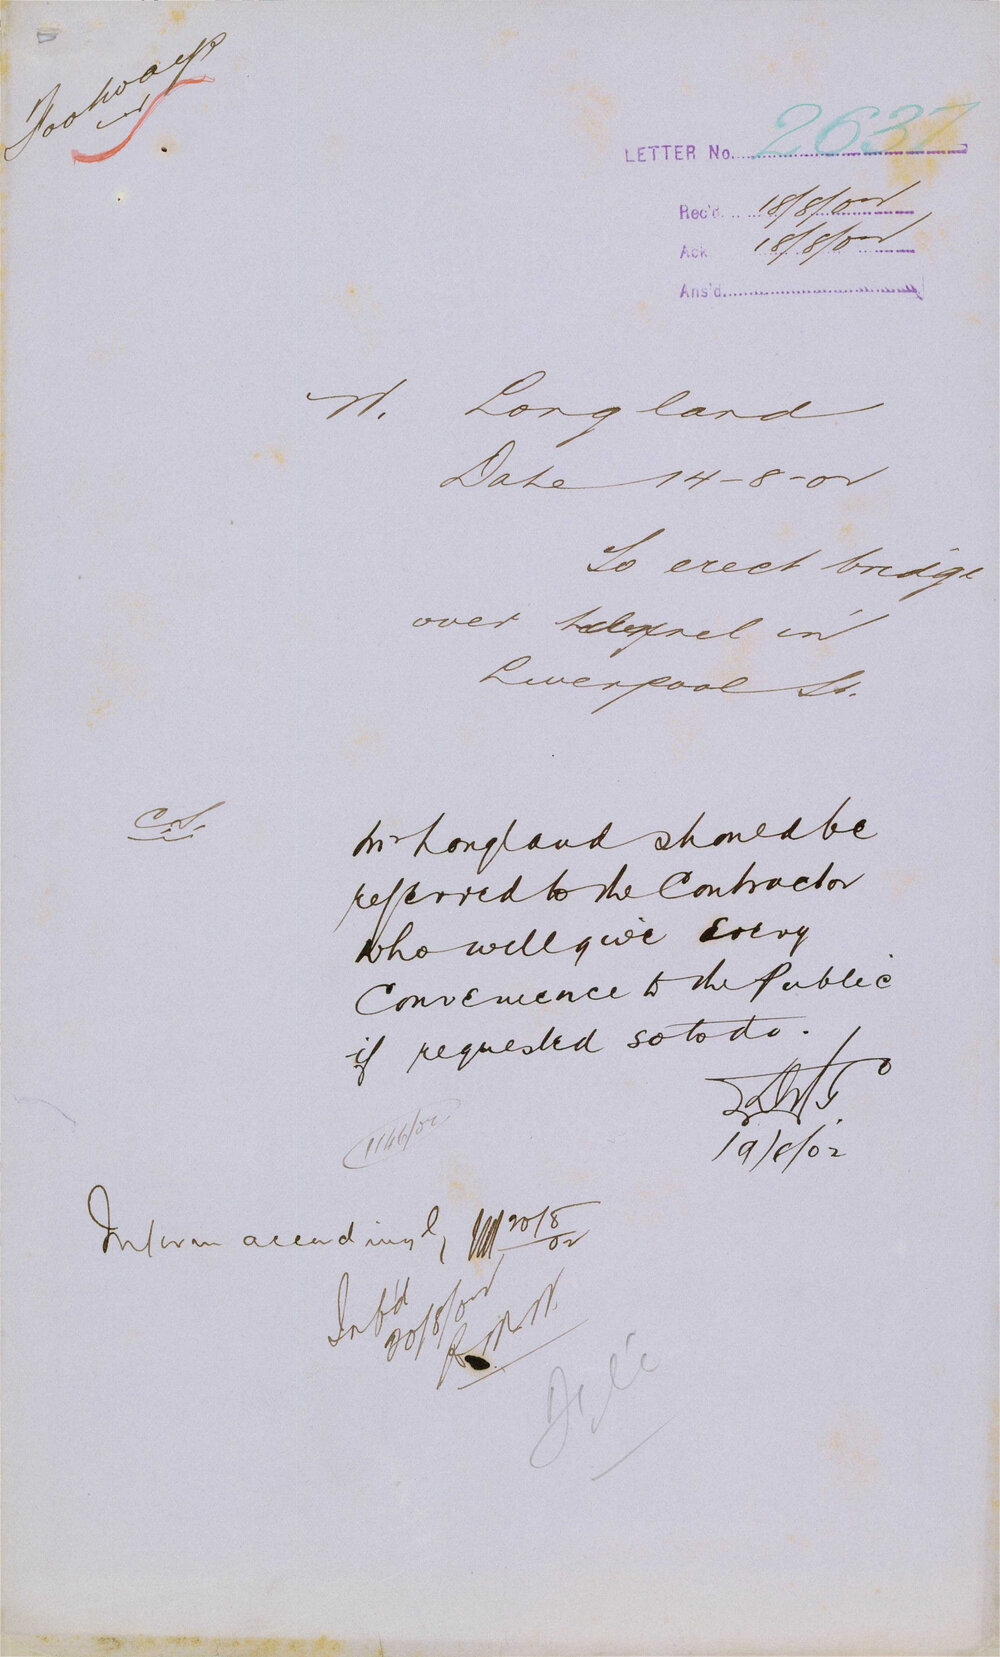 Footways
LETTER No. 2637
Rec'd. 18/8/02
Ack 18/8/02
Ans'd.
W. Longland
Date 14-8-02
To erect bridge
over in
Liverpool St.
Mr Longland should be
referred to the Contractor
who will give Every
Convenience to the Public
if requested so to do.
19/8/02
1146/02
Inform accordingly 20/8/02
Inf'd
20/8/02